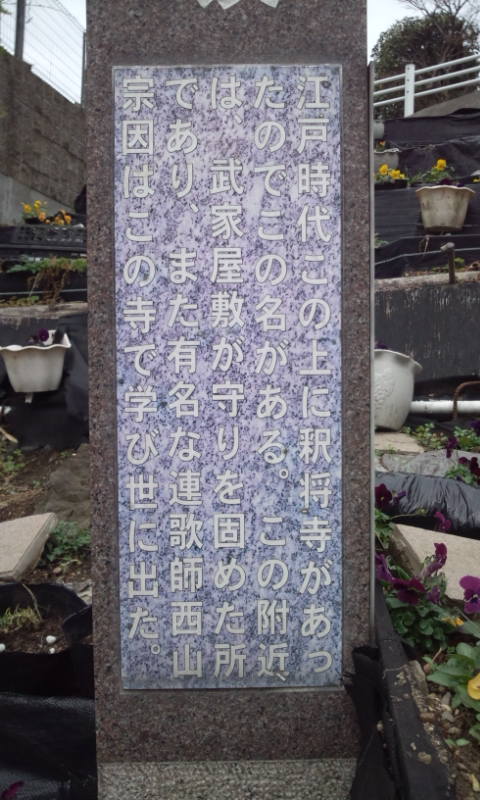 江戸時代この上に釈将寺があっ
たのでこの名がある。この附近、
は、武家屋敷が守りを固めた所
であり、また有名な連歌師西山
宗因はこの寺で学び世に出た。